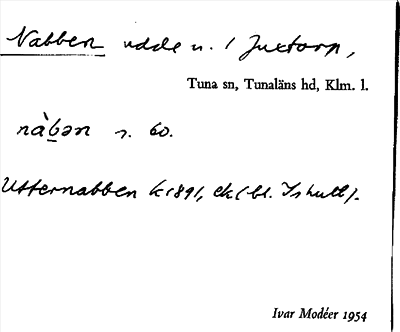 Nabben udde n. i Juxtorp,
Tuna sn, Tunaläns hd, Klm. l.
nàbən s. 60.
Utternabben k 1891, ek (bl. Ishult).
Ivar Modéer 1954